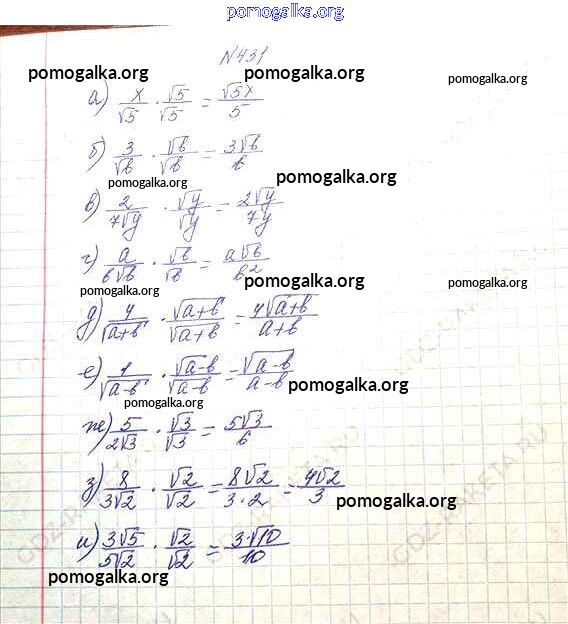 pomogalka.org
N431
pomogalka.org pomogalka.org pomogalka.org
а) x/√5 · √5/√5 = √5x/5
б) 3/√b · √b/√b = 3√b/b
pomogalka.org pomogalka.org
в) 2/7√y · √y/√y = 2√y/7y
г) a/b√b · √b/√b = a√b/b²
pomogalka.org pomogalka.org pomogalka.org
д) 4/√a+b · √a+b/√a+b = 4√a+b/a+b
е) 1/√a-b · √a-b/√a-b = √a-b/a-b
pomogalka.org
pomogalka.org
ж) 5/2√3 · √3/√3 = 5√3/6
з) 8/3√2 · √2/√2 = 8√2/3·2 = 4√2/3
pomogalka.org
и) 3√5/5√2 · √2/√2 = 3·√10/10
pomogalka.org
GDZ-RAKETA.RU